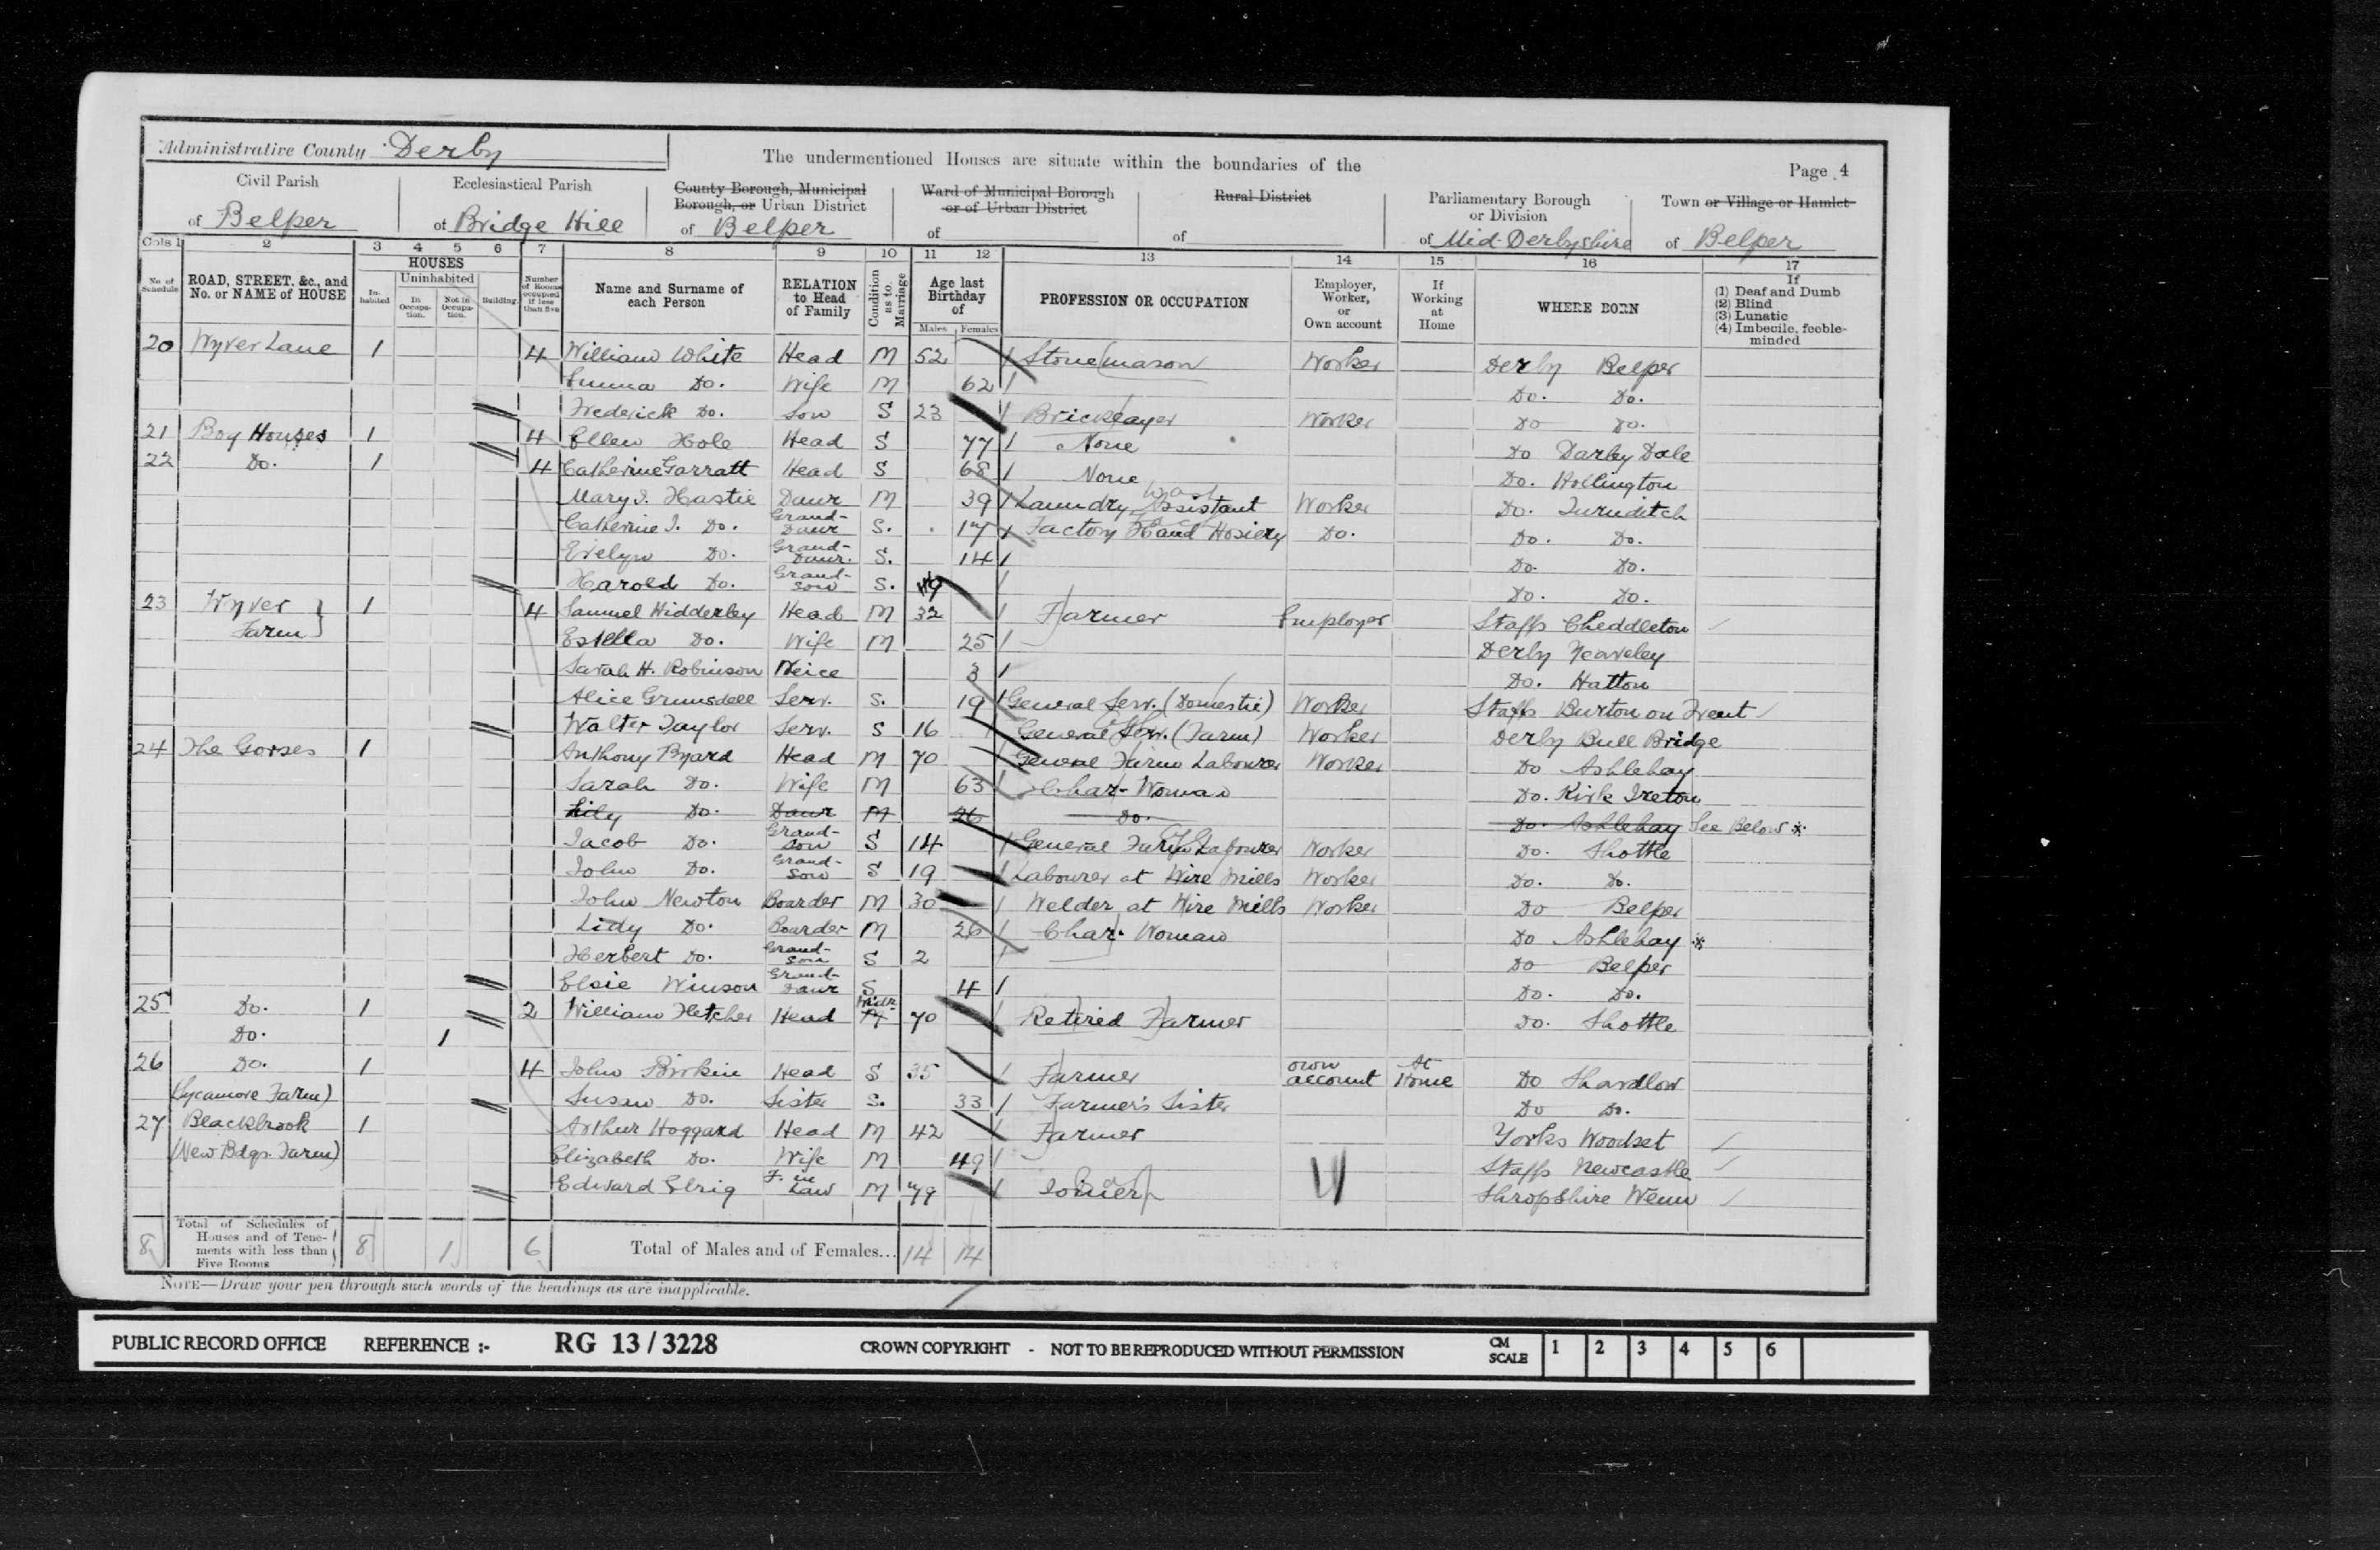 Administrative County Derby
The undermentioned Houses are situate within the boundaries of the
Page 4
Civil Parish of Belper
Ecclesiastical Parish of Bridge Hill
County Borough, Municipal Borough, or Urban District of Belper
Ward of Municipal Borough or of Urban District of
Rural District of
Parliamentary Borough or Division of Mid-Derbyshire
Town or Village or Hamlet of Belper
Cols 1 2 3 4 5 6 7 8 9 10 11 12 13 14 15 16 17
No. of Schedule
ROAD, STREET, &c., and No. or NAME of HOUSE
HOUSES
Inhabited
Uninhabited
In Occupation.
Not in Occupation.
Building.
Number of Rooms occupied if less than five
Name and Surname of each Person
RELATION to Head of Family
Condition as to Marriage
Age last Birthday of
Males Females
PROFESSION OR OCCUPATION
Employer, Worker, or Own account
If Working at Home
WHERE BORN
If
(1) Deaf and Dumb
(2) Blind
(3) Lunatic
(4) Imbecile, feeble-minded
20 Wyver Lane 1 4 William White Head M 52 Stone mason Worker Derby Belper
Emma Do. Wife M 62 Do. Do.
Frederick Do. Son S 23 Bricklayer Worker Do Do.
21 Bog Houses 1 4 Ellen Hole Head S 77 None Do Darley Dale
22 Do. 1 4 Catherine Garratt Head S 68 None Do. Hollington
Mary J. Hastie Daur M 39 Laundry Assistant Worker Do. Turnditch
Catherine J. Do. Grand-Daur S. 17 Factory Hand Hosiery Do. Do. Do.
Evelyn Do. Grand-Daur. S. 14 Do. Do.
Harold Do. Grand-Son S. 9 Do. Do.
23 Wyver Farm } 1 4 Samuel Hidderley Head M 32 Farmer Employer Staffs Cheddleton
Estella Do. Wife M 25 Derby Yeaveley
Sarah H. Robinson Neice 3 Do. Hatton
Alice Grunsdell Serv. S. 19 General Serv. (Domestic) Worker Staffs Burton on Trent
Walter Taylor Serv. S 16 General Serv. (Farm) Worker Derby Bull Bridge
24 The Gorses 1 Anthony Byard Head M 70 General Farm Labourer Worker Do Ashlehay
Sarah Do. Wife M 63 Char-Woman Do. Kirk Ireton
Lily Do. Daur M 26 Do. Do. Ashlehay See Below *
Jacob Do. Grand-Son S 14 General Farm Labourer Worker Do. Shottle
John Do. Grand-Son S 19 Labourer at Wire Mills Worker Do. Do.
John Newton Boarder M 30 Welder at Wire Mills Worker Do Belper
Lidy Do. Boarder M 26 Char-Woman Do Ashlehay *
Herbert Do. Grand-Son S 2 Do Belper
Elsie Winson Grand-Daur S 4 Do. Do.
25 Do. 1 2 William Fletcher Head Widr 70 Retired Farmer Do. Shottle
Do. 1
26 Do. 1 4 John Birkin Head S 35 Farmer own account At Home Do Shardlow
(Sycamore Farm) Susan Do. Sister S. 33 Farmer's Sister Do Do.
27 Blackbrook 1 Arthur Hoggard Head M 42 Farmer Yorks Woodset
(New Bdgs. Farm) Elizabeth Do. Wife M 49 Staffs Newcastle
Edward Elrig F. in Law M 79 Joiner Shropshire Wem
8 Total of Schedules of Houses and of Tenements with less than Five Rooms 8 1 6 Total of Males and of Females... 14 14
NOTE—Draw your pen through such words of the headings as are inapplicable.
PUBLIC RECORD OFFICE REFERENCE :- RG 13 / 3228 CROWN COPYRIGHT - NOT TO BE REPRODUCED WITHOUT PERMISSION CM SCALE 1 2 3 4 5 6